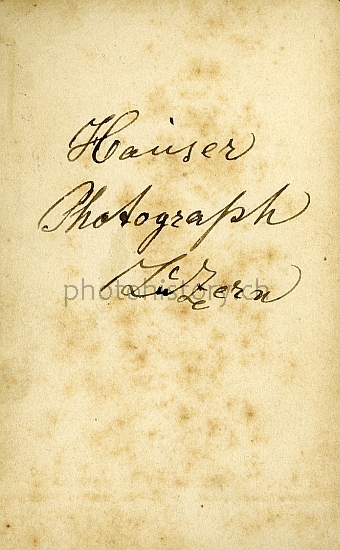 Hauser
Photograph
Luzern
photohistory.ch